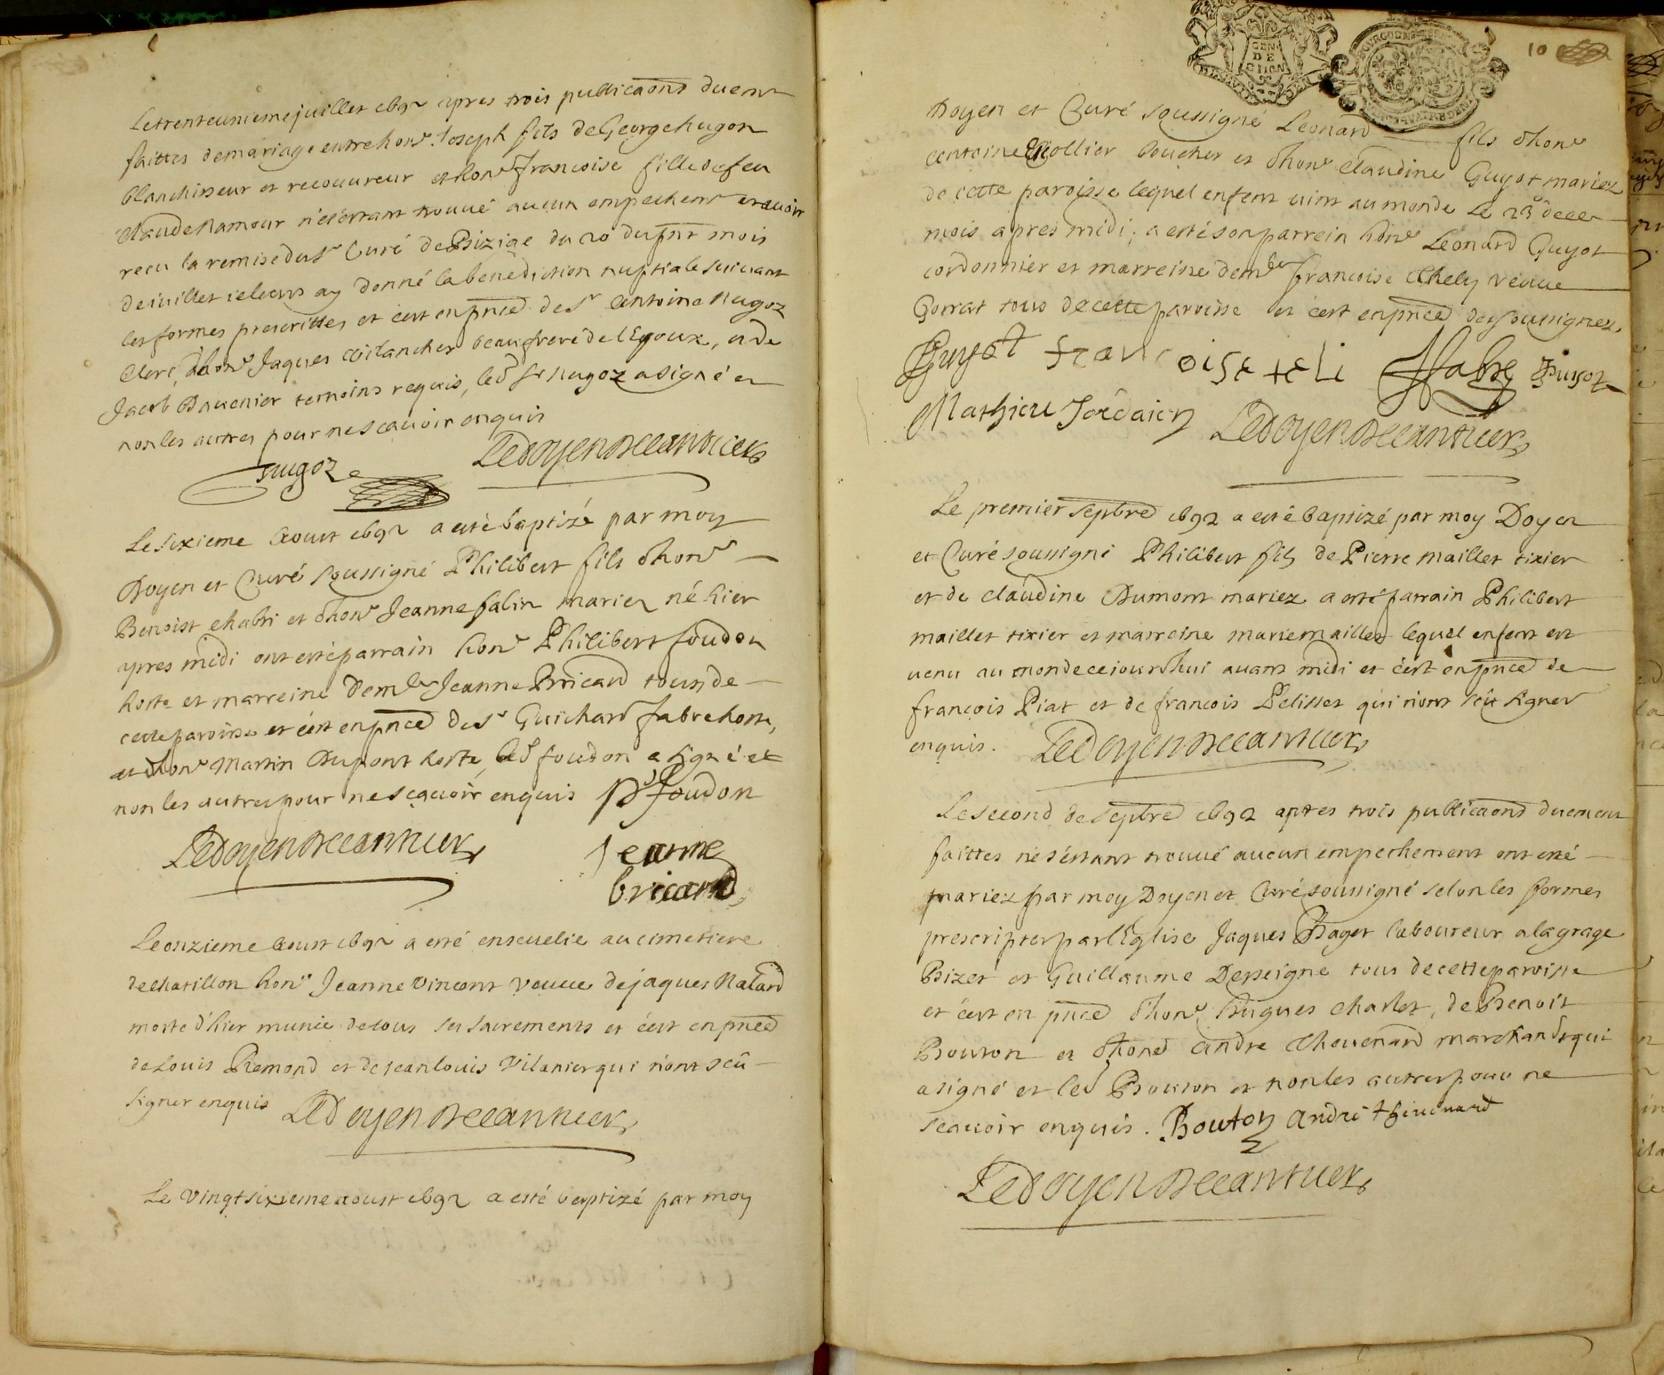 Le trente unieme juillet 1692 apres trois publicaons duem.t
faittes de mariage entre hon.e Joseph fils de George hugon
blanchisseur et recouureur et hon.e francoise fille de feu
Claude Namour n'estant trouué aucun empechem.t et auoir
recu la remise du s.r Curé de Bizige du 20 du pnt mois
de juillet ie leurs ay donné la benediction nuptiale suiuant
les formes prescrittes et c'est en pnce de s.r Antoine Nugoz
Clerc, d'hon.e Jaques blancher beaufrere de l'Epoux, et de
Jacob Dauenier temoins requis, led. s.r Nugoz a signé et
non les autres pour ne scauoir enquis
Nugoz Ledoyen Decanteur
Le sixieme Aoust 1692 a esté baptizé par moy
Doyen et Curé soussigné Philibert fils d'hon.e
Benoist chabri et d'hon.e Jeanne salin mariez né hier
apres midi ont esté parrain hon.e Philibert foudon
hoste et marreine Dem.le Jeanne Bricaud tous de
cette paroisse et c'est en pnce de s.r Guichard fabre hoste,
et d'hon.e Martin Dupont hoste, led. foudon a signé et
non les autres pour ne scauoir enquis P foudon
Ledoyen Decanteur Jeanne
bricaud
Le onzieme Aoust 1692 a esté enseuelie au cimetiere
de chatillon hon.e Jeanne Vincent veuue de jaques Natard
morte d'hier munie de tous ses sacrements et c'est en pnce
de Louis Remond et de jean louis Vilanier qui n'ont sceû
signer enquis Ledoyen Decanteur
Le vingt sixieme aoust 1692 a esté baptizé par moy
10
Doyen et Curé soussigné Leonard fils d'hon.e
Antoine Collier boucher et d'hon.e Claudine Guyot mariez
de cette paroisse lequel enfent uint au monde le 23.e de ce
mois apres midi, a esté son parrein hon.e Léonard Guyot
cordonnier et marreine dem.le francoise Thely veuue
Gorrat tous de cette paroisse et c'est en pnce des soussignez
Guyot francoise teli ffabre Guyot
Mathieu Jordain Ledoyen Decanteur
Le premier Septbre 1692 a esté baptizé par moy Doyen
et Curé soussigné Philibert fils de Pierre maillet tixier
et de Claudine Dumont mariez a esté parrain Philibert
maillet tixier et marreine marie maillet lequel enfent est
uenu au monde ce iourdhui auant midi et c'est en pnce de
francois Piat et de francois Pelisset qui n'ont sceû signer
enquis. Ledoyen Decanteur
Le second de Septbre 1692 aptres trois publicaons duement
faittes ne s'estant trouué aucun empechement ont esté
mariez par moy Doyen et Curé soussigné selon les formes
prescriptes par l'Eglise Jaques Bager laboureur a la grage
Bizet et Guillaume Desseigne tous de cette paroisse
et c'est en pnce d'hon.e hugues Charlet, de Benoit
Bouton et d'hone Andre Theuenard marchands qui
a signé et led. Bouton et non les autres pour ne
scauoir enquis. Bouton André theuenard
Ledoyen Decanteur